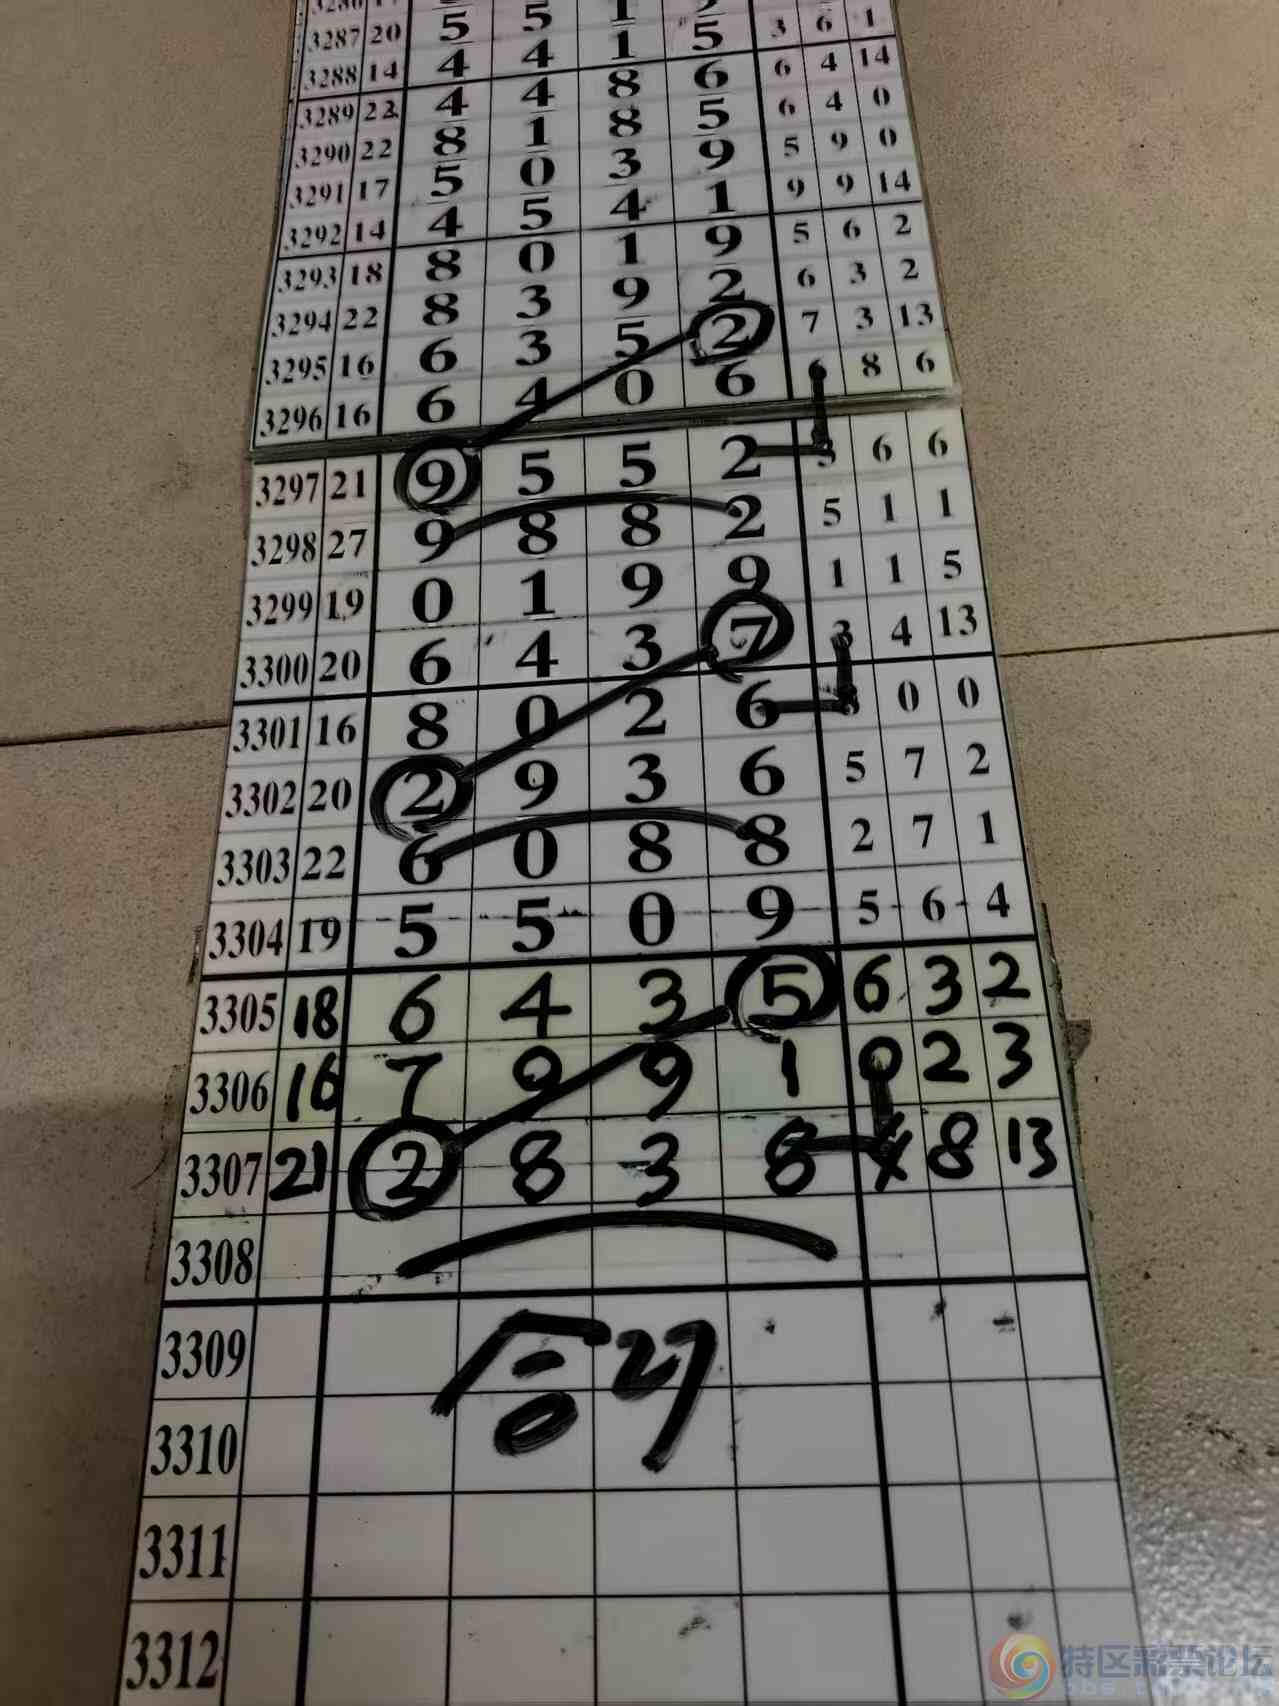 3287 20 5 5 1
3288 14 4 4 1 5 3 6 1
3289 22 4 4 8 6 6 4 14
3290 22 8 1 8 5 6 4 0
3291 17 5 0 3 9 5 9 0
3292 14 4 5 4 1 9 9 14
3293 18 8 0 1 9 5 6 2
3294 22 8 3 9 2 6 3 2
3295 16 6 3 5 2 7 3 13
3296 16 6 4 0 6 6 8 6
3297 21 9 5 5 2 3 6 6
3298 27 9 8 8 2 5 1 1
3299 19 0 1 9 9 1 1 5
3300 20 6 4 3 7 3 4 13
3301 16 8 0 2 6 0 0
3302 20 2 9 3 6 5 7 2
3303 22 6 0 8 8 2 7 1
3304 19 5 5 0 9 5 6 4
3305 18 6 4 3 5 6 3 2
3306 16 7 9 9 1 0 2 3
3307 21 2 8 3 8 4 8 13
3308
3309
合27
3310
3311
3312
特区彩票论坛